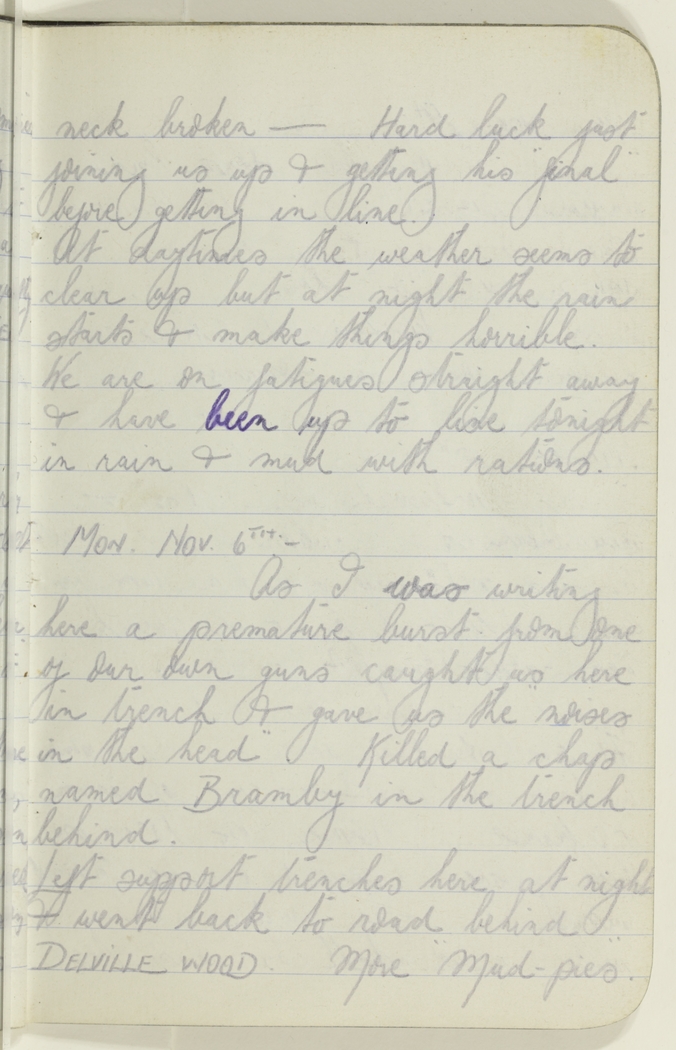 neck broken — Hard luck just
joining us up & getting his "final"
before getting in line.
At daytimes the weather seems to
clear up but at night the rain
starts & make things horrible.
We are on fatigues straight away
& have been up to line tonight
in rain & mud with rations.
Mon. Nov. 6TH. –
As I was writing
here a premature burst from one
of our own guns caught us here
in trench & gave us the "noises
in the head" Killed a chap
named Bramby in the trench
behind.
Left support trenches here at night
& went back to road behind
DELVILLE WOOD. More "Mud-pies".